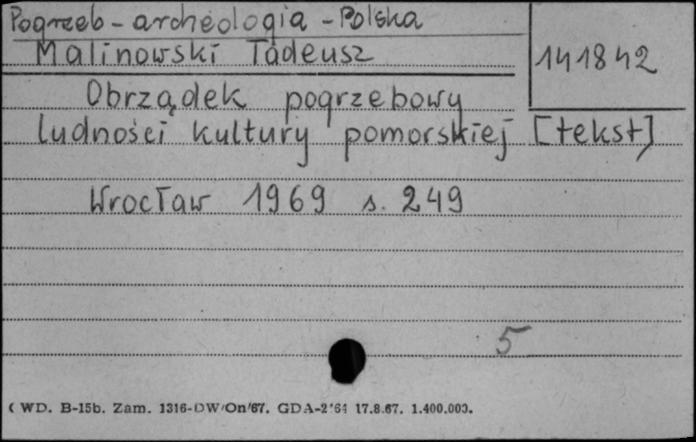 Pogrzeb - archeologia - Polska
Malinowski Tadeusz
141842
Obrządek pogrzebowy
ludności kultury pomorskiej [tekst]
Wrocław 1969 s. 249
5
( WD. B-15b. Zam. 1316-DW/On/67. GDA-2/64 17.8.67. 1.400.000.